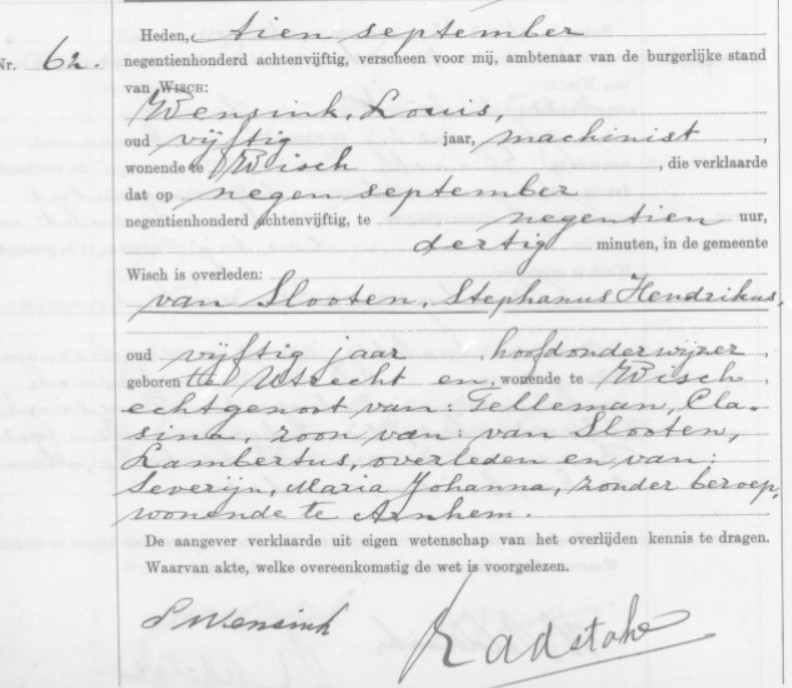 Heden, tien september
Nr. 62. negentienhonderd achtenvijftig, verscheen voor mij, ambtenaar van de burgerlijke stand
van Wisch:
Wensink, Louis,
oud vijftig jaar, machinist ,
wonende te Wisch , die verklaarde
dat op negen september
negentienhonderd achtenvijftig, te negentien uur,
dertig minuten, in de gemeente
Wisch is overleden:
van Slooten, Stephanus Hendrikus,
oud vijftig jaar , hoofdonderwijzer ,
geboren te Utrecht en, wonende te Wisch ,
echtgenoot van: Telleman, Cla-
sina, zoon van: van Slooten,
Lambertus, overleden en van:
Severijn, Maria Johanna, zonder beroep,
wonende te Arnhem.
De aangever verklaarde uit eigen wetenschap van het overlijden kennis te dragen.
Waarvan akte, welke overeenkomstig de wet is voorgelezen.
L Wensink
Radstake